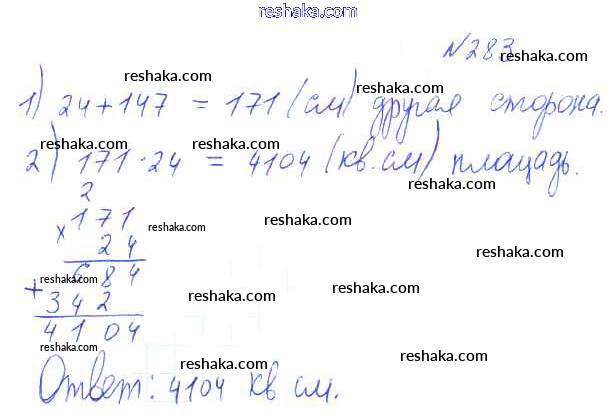 reshaka.com
№283
reshaka.com
reshaka.com reshaka.com
1) 24+147 = 171 (см) другая сторона.
reshaka.com reshaka.com
2) 171·24 = 4104 (кв.см) площадь.
2
× 171 reshaka.com reshaka.com reshaka.com
24
684
reshaka.com reshaka.com
+ 342
4104
reshaka.com reshaka.com
Ответ: 4104 кв см.
reshaka.com